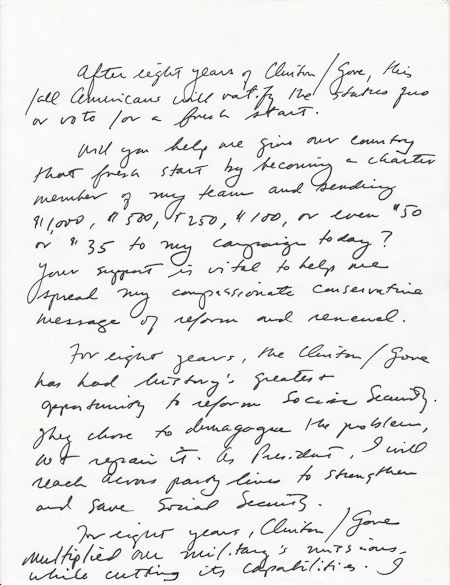 After eight years of Clinton/Gore, this
fall Americans will ratify the status quo
or vote for a fresh start.
Will you help me give our country
that fresh start by becoming a charter
member of my team and sending
$1,000, $500, $250, $100, or even $50
or $35 to my campaign today?
Your support is vital to help me
spread my compassionate conservative
message of reform and renewal.
For eight years, the Clinton/Gore
has had history's greatest
opportunity to reform Social Security.
They chose to demagogue the problem,
not repair it. As President, I will
reach across party lines to strengthen
and save Social Security.
For eight years, Clinton/Gore
multiplied our military's missions,
while cutting its capabilities. I